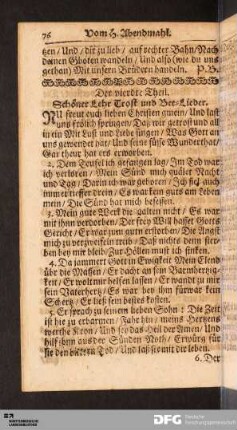 76 Vom H. Abendmahl.
tzen / Und / dir zu lieb / auf rechter Bahn / Nach
deinen Gboten wandeln / Und also (wie du uns
gethan) Mit unsern Brüdern handeln. P. G.
Der vierdte Theil.
Schöner Lehr Trost und Bet-Lieder.
NU freut euch lieben Christen gmein / Und last
uns frölich springen / Das wir getrost und all
in ein Mit Lust und Liebe singen / Was Gott an
uns gewendet hat / Und seine süsse Wunderthat /
Gar theur hat ers erworben.
2. Dem Teufel ich gefangen lag / Im Tod war
ich verlohren / Mein Sünd mich quälet Nacht
und Tag / Darin ich war gebohren / Ich fiel auch
immer tieffer drein / Es war kein guts am leben
mein / Die Sünd hat mich besessen.
3. Mein gute Werck die galten nicht / Es war
mit ihnn verdorben / Der frey Will hasset Gotts
Gericht / Er war zum gutn erstorben / Die Angst
mich zu verzweifeln trieb / Daß nichts denn ster-
ben bey mir bleib / Zur Höllen must ich sincken.
4. Da jammert Gott in Ewigkeit Mein Elend
übr die Massen / Er dacht an sein Barmhertzig-
keit / Er wolt mir helfen lassen / Er wandt zu mir
sein Vaterhertz / Es war bey ihm fürwar kein
Schertz / Er ließ sein bestes kosten.
5. Er sprach zu seinem lieben Sohn : Die Zeit
ist hie zu erbarmen / Fahr hin / meins Hertzens
werthe Kron / Und sey das Heil der Armen / Und
hilf ihm aus der Sünden Noth / Erwürg für
sie den bittern Tod / Und laß sie mit dir leben.
6. Der
DFG